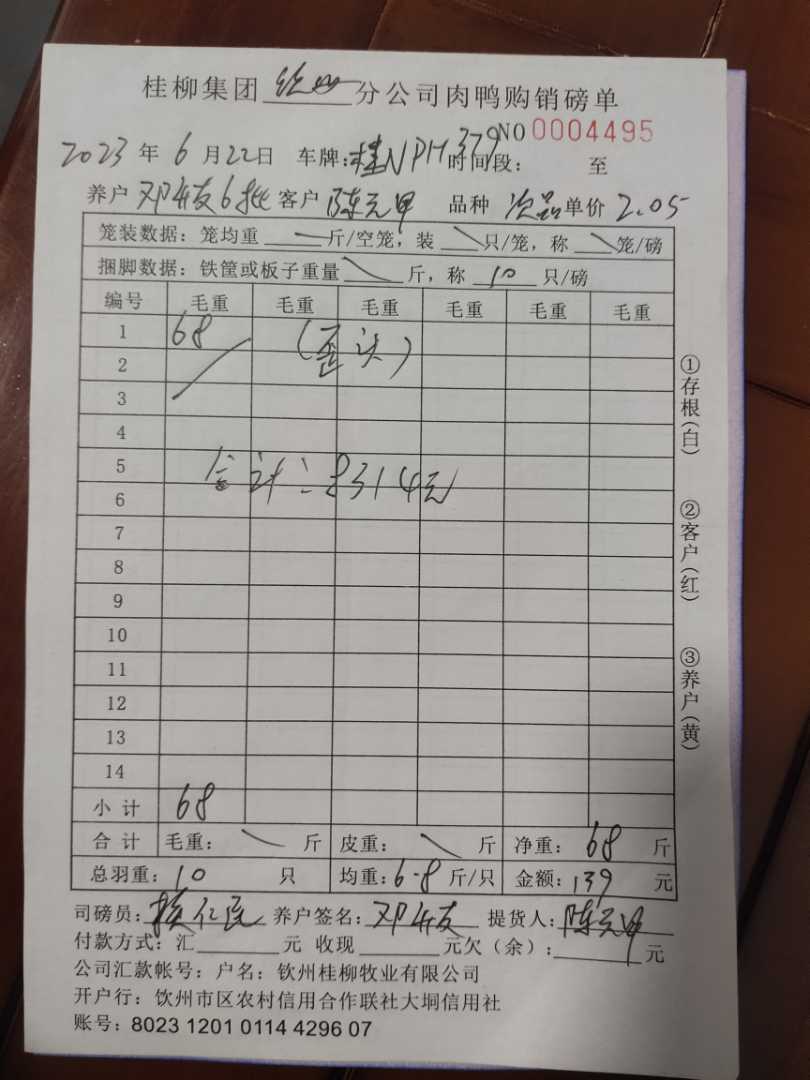 桂柳集团 分公司肉鸭购销磅单
NO 0004495
2023 年 6 月 22 日 车牌：桂NPH379 时间段： 至
养户 邓 友6批 客户 陈元甲 品种 次品 单价 2.05
笼装数据：笼均重 斤/空笼，装 只/笼，称 笼/磅
捆脚数据：铁筐或板子重量 斤，称 10 只/磅
编号 毛重 毛重 毛重 毛重 毛重 毛重
1 68 (歪头)
2
3
4
5 合计：8314元
6
7
8
9
10
11
12
13
14
小计 68
合计 毛重： 斤 皮重： 斤 净重：68 斤
总羽重：10 只 均重：6-8 斤/只 金额：139 元
司磅员： 仁 养户签名：邓 友 提货人：陈元甲
付款方式：汇 元 收现 元欠（余）： 元
公司汇款帐号：户名：钦州桂柳牧业有限公司
开户行：饮州市区农村信用合作联社大垌信用社
账号：8023 1201 0114 4296 07
①存根（白）
②客户（红）
③养户（黄）